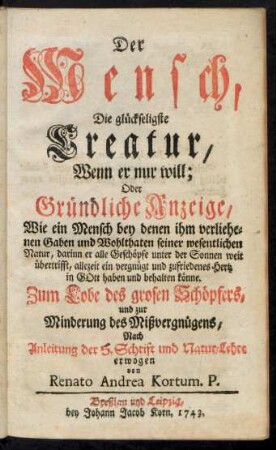 Der
Mensch,
Die glückseligste
Creatur,
Wenn er nur will;
Oder
Gründliche Anzeige,
Wie ein Mensch bey denen ihm verliehe-
nen Gaben und Wohlthaten seiner wesentlichen
Natur, darinn er alle Geschöpfe unter der Sonnen weit
übertrifft, allezeit ein vergnügt und zufriedenes Hertz
in GOtt haben und behalten könne.
Zum Lobe des grosen Schöpfers,
und zur
Minderung des Mißvergnügens,
Nach
Anleitung der H. Schrift und Natur-Lehre
erwogen
von
Renato Andrea Kortum. P.
Breßlau und Leipzig,
bey Johann Jacob Korn, 1743.